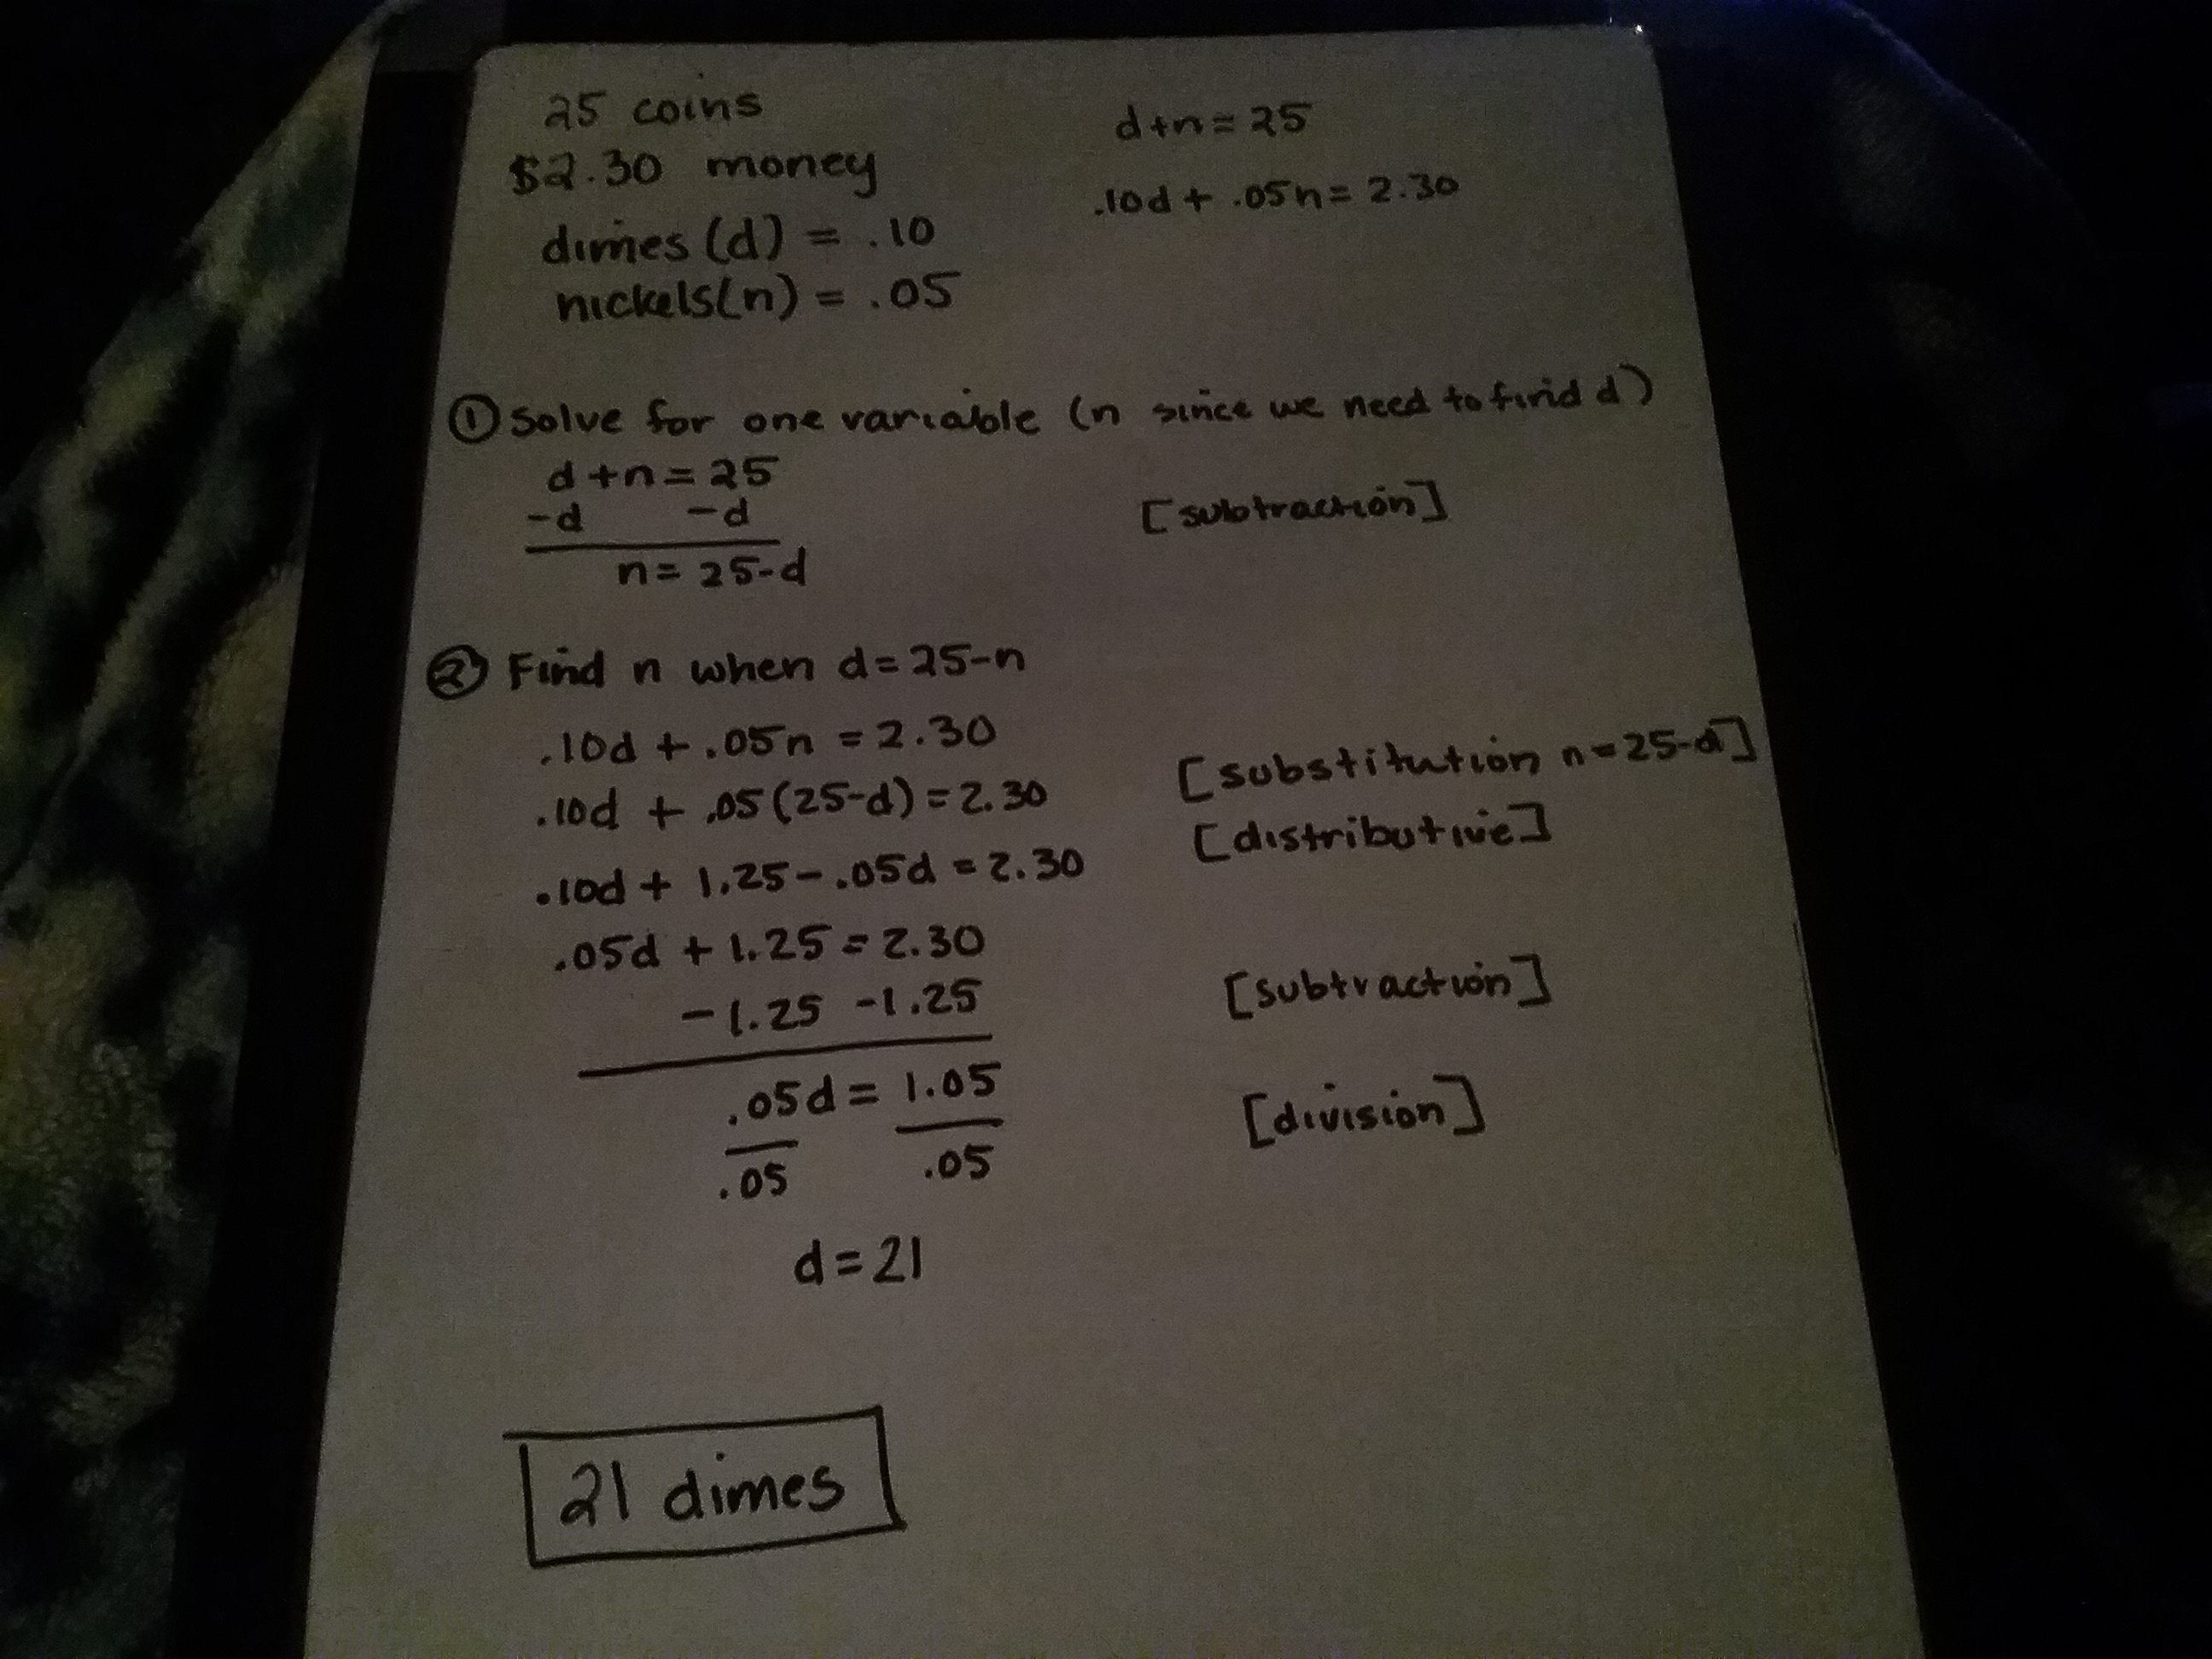 25 coins
$2.30 money
dimes (d) = .10
nickels(n) = .05
d+n=25
.10d + .05n = 2.30
① Solve for one variable (n since we need to find d)
d+n=25
-d -d
n=25-d
[subtraction]
② Find n when d=25-n
.10d + .05n = 2.30
.10d + .05(25-d) = 2.30 [substitution n=25-d]
.10d + 1.25 - .05d = 2.30 [distributive]
.05d + 1.25 = 2.30
-1.25 -1.25 [subtraction]
.05d = 1.05
.05 .05 [division]
d=21
21 dimes